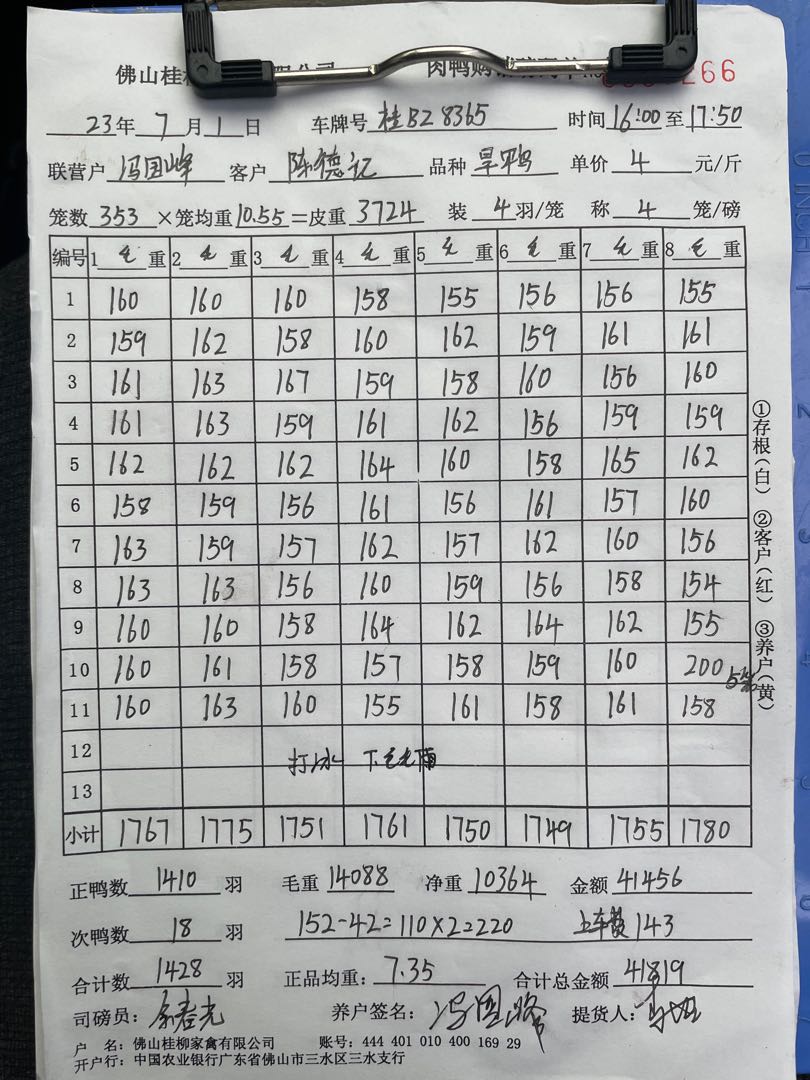 佛山桂柳 266
23年 7 月 1 日 车牌号 桂BZ8365 时间 16:00 至 17:50
联营户 冯国峰 客户 陈德记 品种 旱鸭 单价 4 元/斤
笼数 353 ×笼均重 10.55 =皮重 3724 装 4 羽/笼 称 4 笼/磅
编号 1 毛 重 2 毛 重 3 毛 重 4 毛 重 5 毛 重 6 毛 重 7 毛 重 8 毛 重
1 160 160 160 158 155 156 156 155
2 159 162 158 160 162 159 161 161
3 161 163 167 159 158 160 156 160
4 161 163 159 161 162 156 159 159
5 162 162 162 164 160 158 165 162
6 158 159 156 161 156 161 157 160
7 163 159 157 162 157 162 160 156
8 163 163 156 160 159 156 158 154
9 160 160 158 164 162 164 162 155
10 160 161 158 157 158 159 160 200 5笼
11 160 163 160 155 161 158 161 158
12 打冰 下毛毛雨
13
小计 1767 1775 1751 1761 1750 1749 1755 1780
正鸭数 1410 羽 毛重 14088 净重 10364 金额 41456
次鸭数 18 羽 152-42=110×2=220 上车费 143
合计数 1428 羽 正品均重: 7.35 合计总金额 41819
司磅员: 养户签名: 冯国峰 提货人:
户 名: 佛山桂柳家禽有限公司 账号: 444 401 010 400 169 29
开户行: 中国农业银行广东省佛山市三水区三水支行
①存根(白) ②客户(红) ③养户(黄)